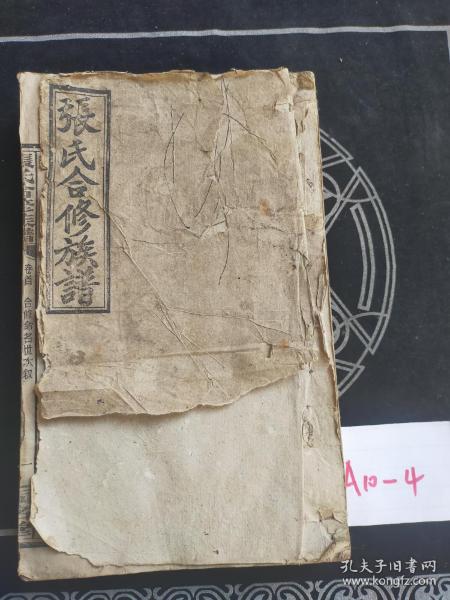 張氏合修族譜
卷首 合修命名世次叙
A10-4
孔夫子旧书网
www.kongfz.com